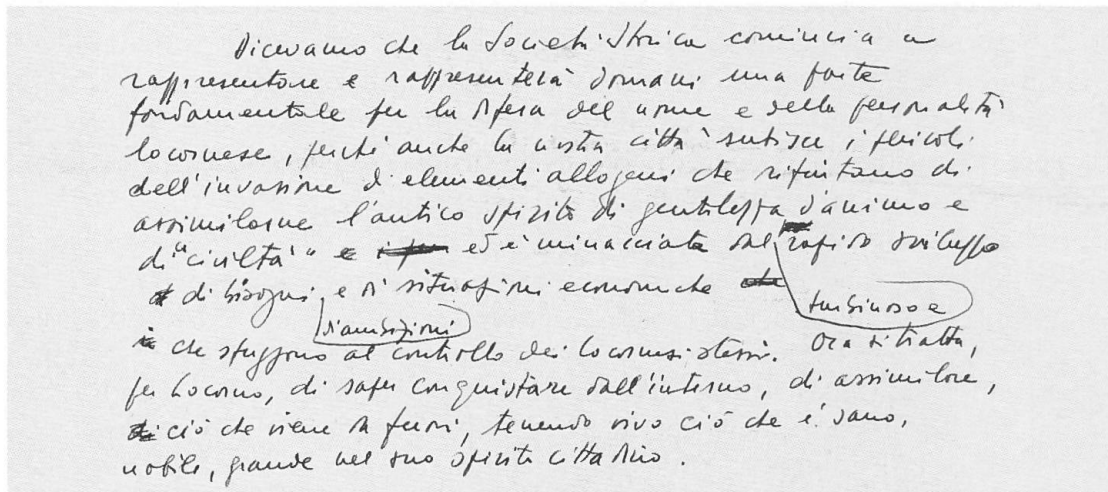 Dicevamo che la Società Storica comincia a
rappresentare e rappresenterà domani una forte
fondamentale per la difesa del nome e della personalità
locarnese, perché anche la nostra città subisce i pericoli
dell'invasione di elementi allogeni che rifiutano di
assimilarne l'antico spirito di gentilezza d'animo e
di "civiltà" e ed è minacciata dal rapido sviluppo
di bisogni e di situazioni economiche
d'ambizioni turbinoso e
che sfuggono al controllo dei locarnesi stessi. Ora si tratta,
per Locarno, di saper conquistare dall'interno, di assimilare,
ciò che viene da fuori, tenendo vivo ciò che è sano,
nobile, grande nel suo spirito cittadino.